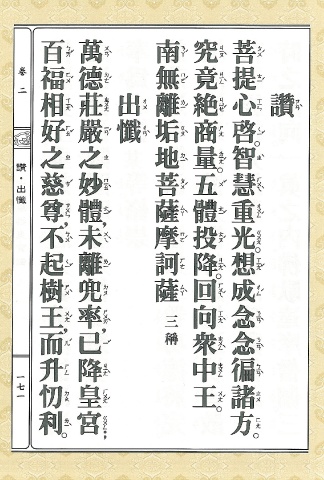 讚
菩提心啓。智慧重光。想成念念徧諸方。
究竟絕商量。五體投降。回向衆中王。
南無離垢地菩薩摩訶薩 三稱
出懺
萬德莊嚴之妙體，未離兜率，已降皇宮
百福相好之慈尊，不起樹王，而升忉利。
卷二
讚・出懺
一七一